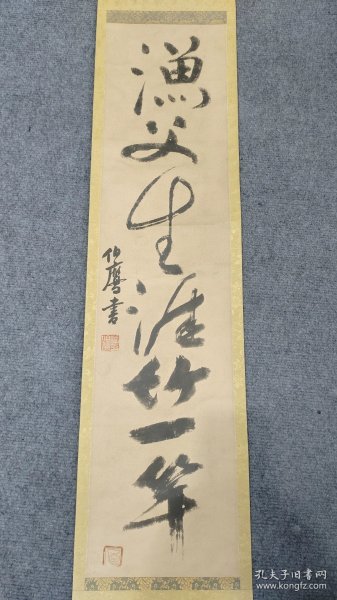 漁父生涯竹一竿
伯鹰書
孔夫子旧書网
www.kongfz.com